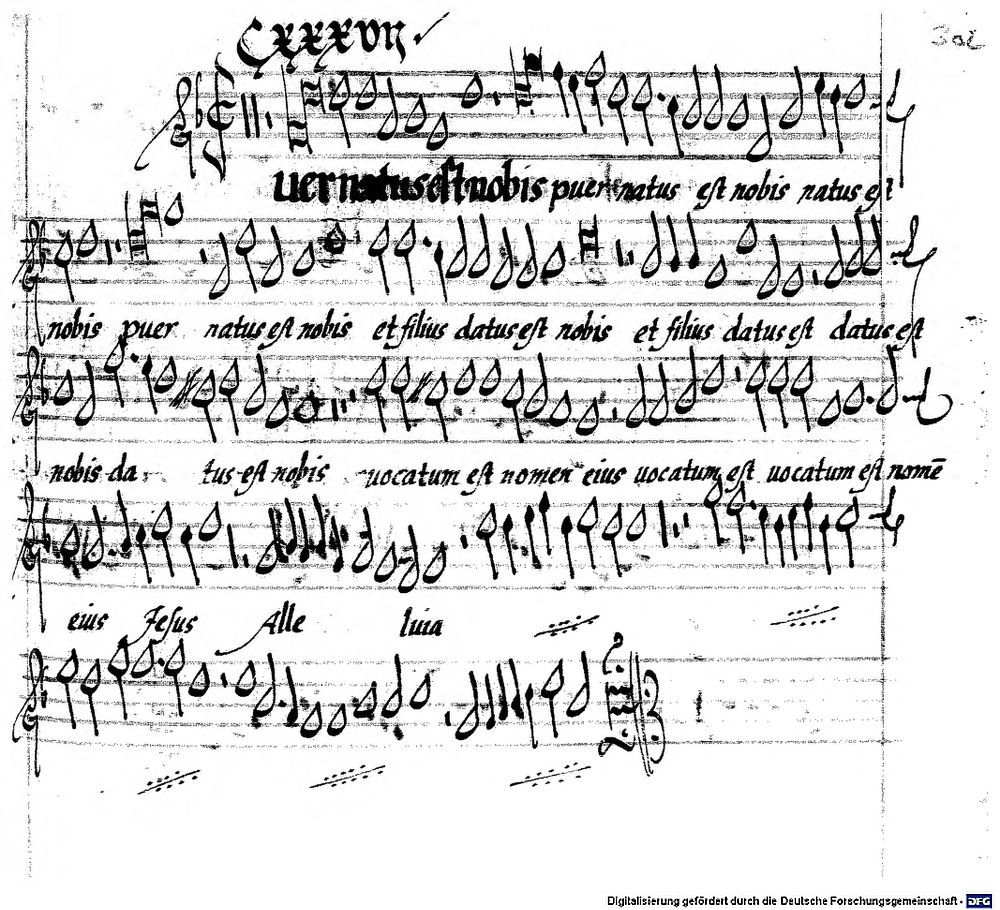 CXXXVII.
302
uer natus est nobis puer natus est nobis natus est
nobis puer natus est nobis et filius datus est nobis et filius datus est datus est
nobis da tus est nobis vocatum est nomen eius vocatum est vocatum est nomē
eius Jesus Alle luia
Digitalisierung gefördert durch die Deutsche Forschungsgemeinschaft - DFG